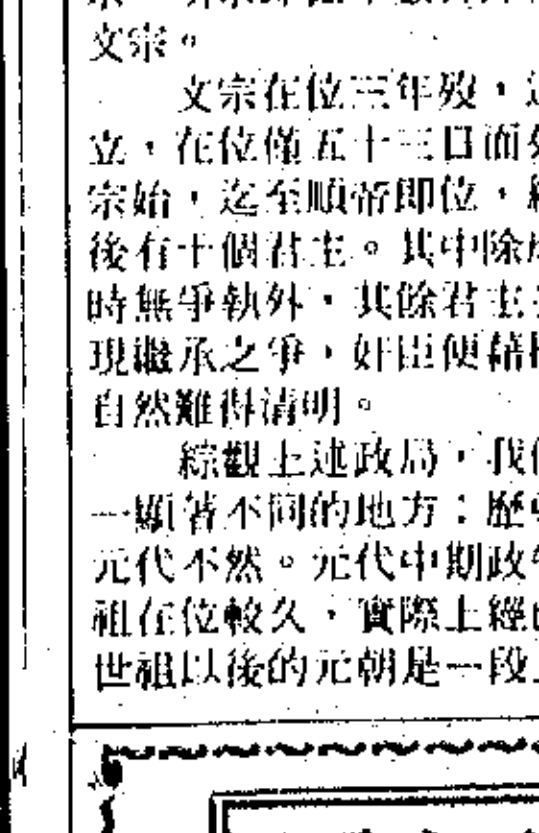 文宗。
文宗在位三年歿，
立，在位僅五十三日而
宗始，迄至順帝即位，
後有十個君主。其中除
時無爭執外，其餘君主
現繼承之爭，奸臣便藉
自然難得清明。
綜觀上述政局，我
一顯著不同的地方：歷
元代不然。元代中期政
祖在位較久，實際上經
世祖以後的元朝是一段